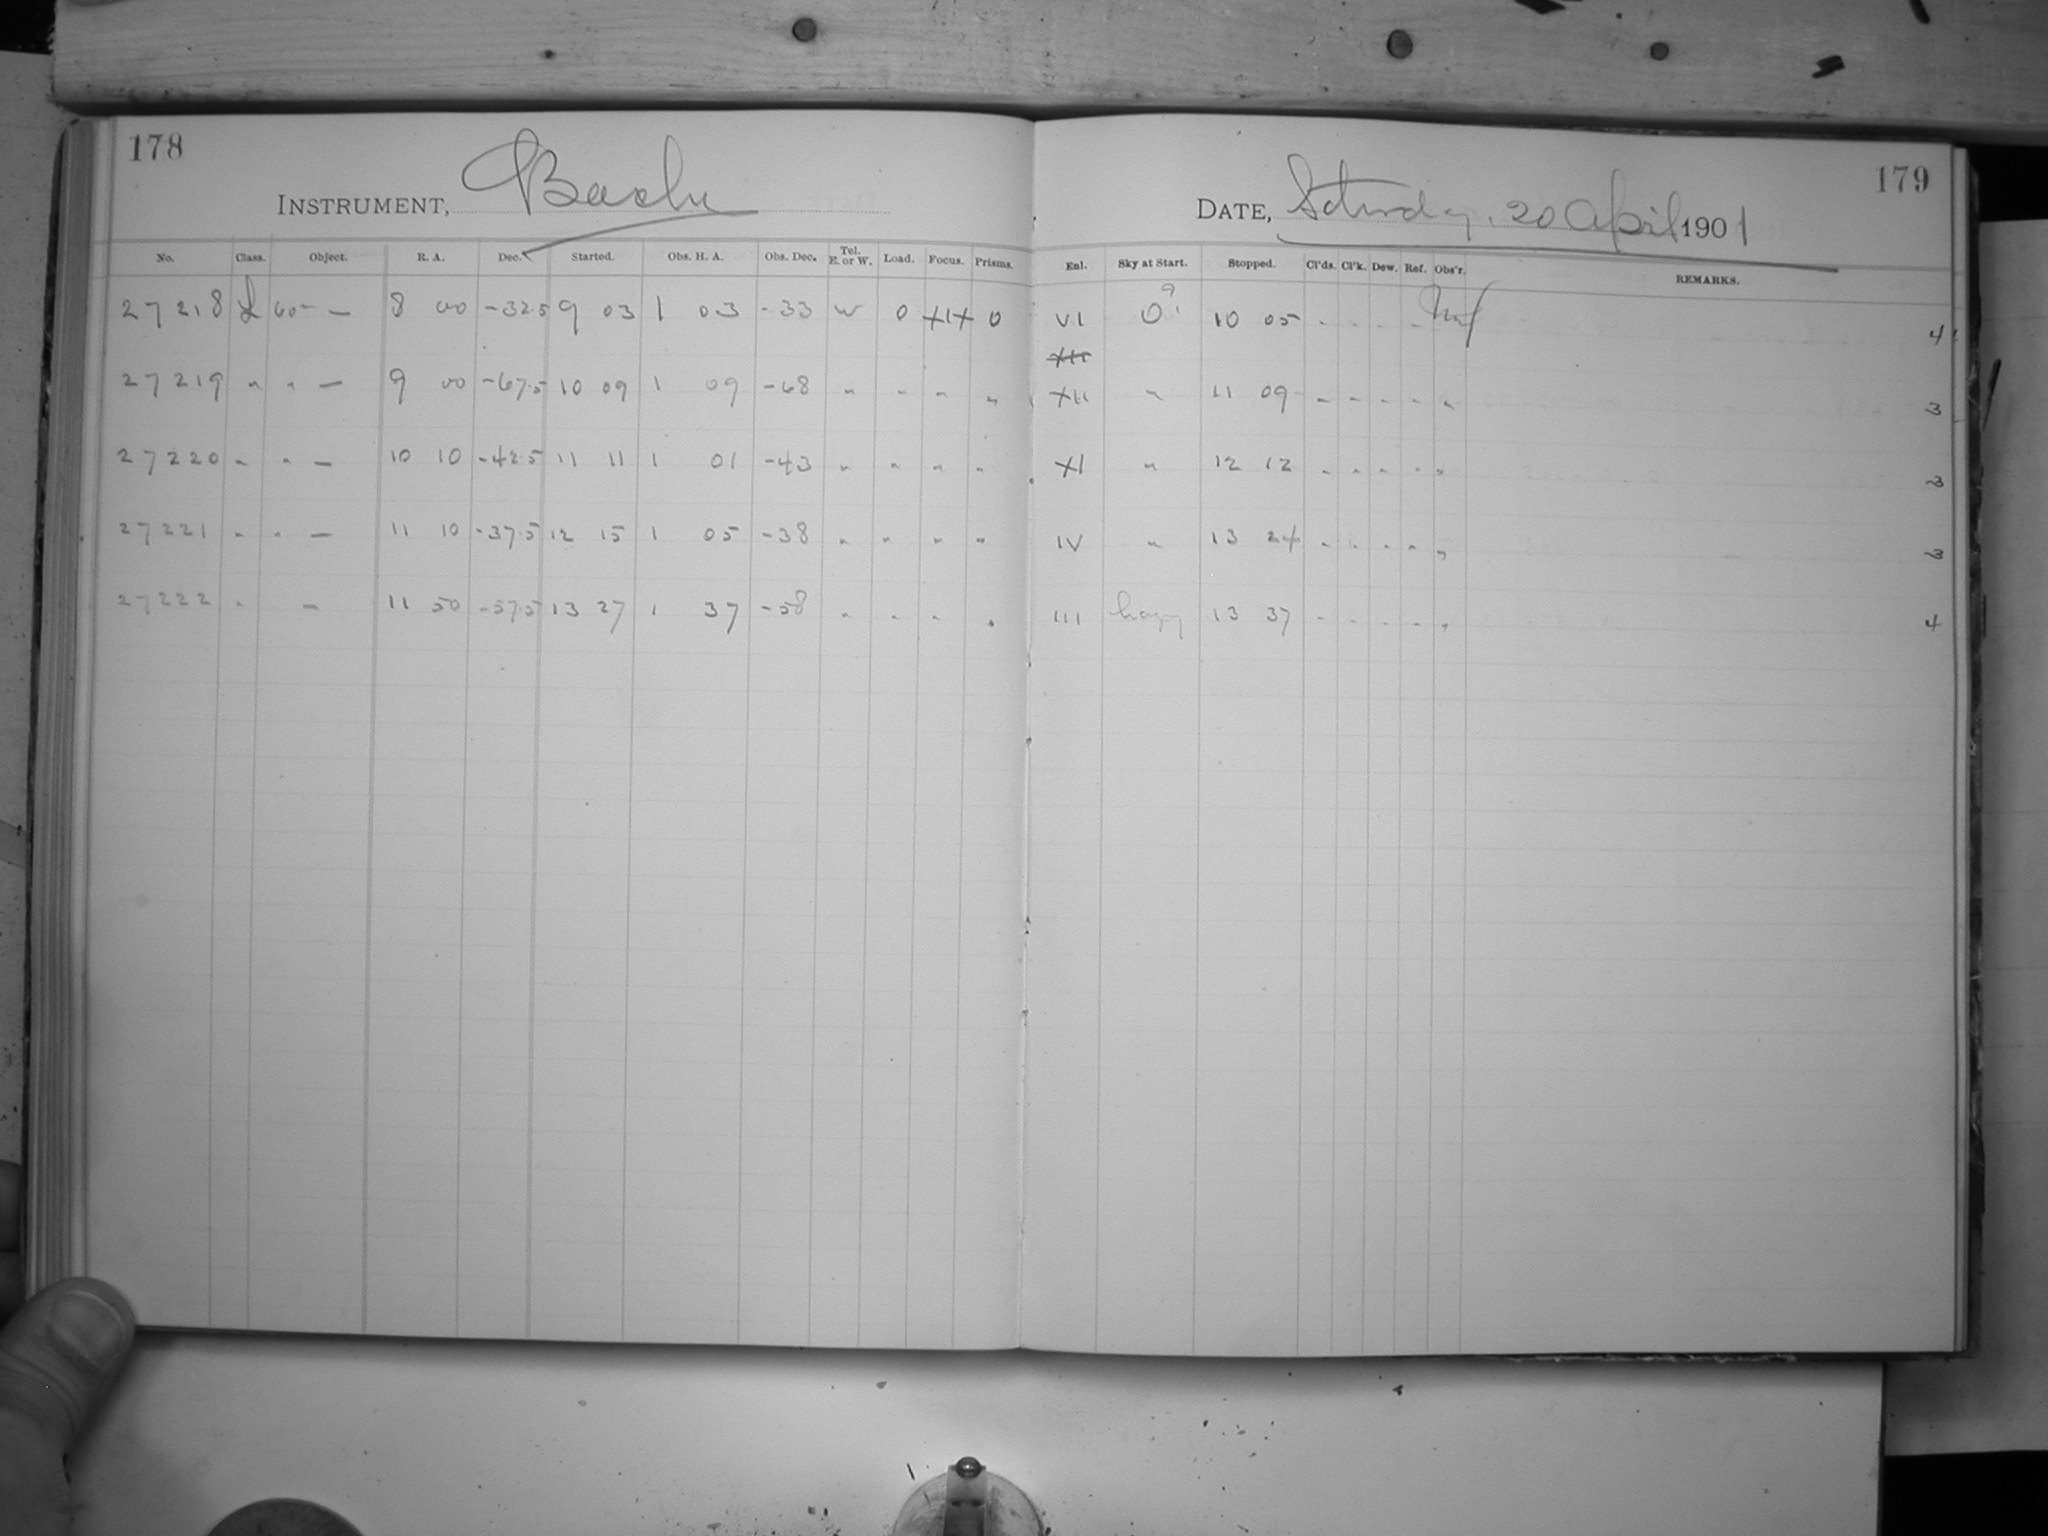 178
INSTRUMENT, Bache
No. Class. Object. R. A. Dec. Started. Obs. H. A. Obs. Dec. Tel. E. or W. Load. Focus. Prisms.
27218 L 60m — 8 00 -32.5 9 03 1 03 -33 W 0 XIX 0
27219 " " — 9 00 -67.5 10 09 1 09 -68 " " " "
27220 " " — 10 10 -42.5 11 11 1 01 -43 " " " "
27221 " " — 11 10 -37.5 12 15 1 05 -38 " " " "
27222 " — 11 50 -57.5 13 27 1 37 -58 " " " "
179
DATE, Saturday, 20 April 1901
Enl. Sky at Start. Stopped. Cl'ds. Cl'k. Dew. Ref. Obs'r. REMARKS.
VI 0 10 05 - - - - 4
XII " 11 09 - - - - " 3
XI " 12 12 - - - - " 3
IV " 13 24 - - - - " 3
III hazy 13 37 - - - - " 4